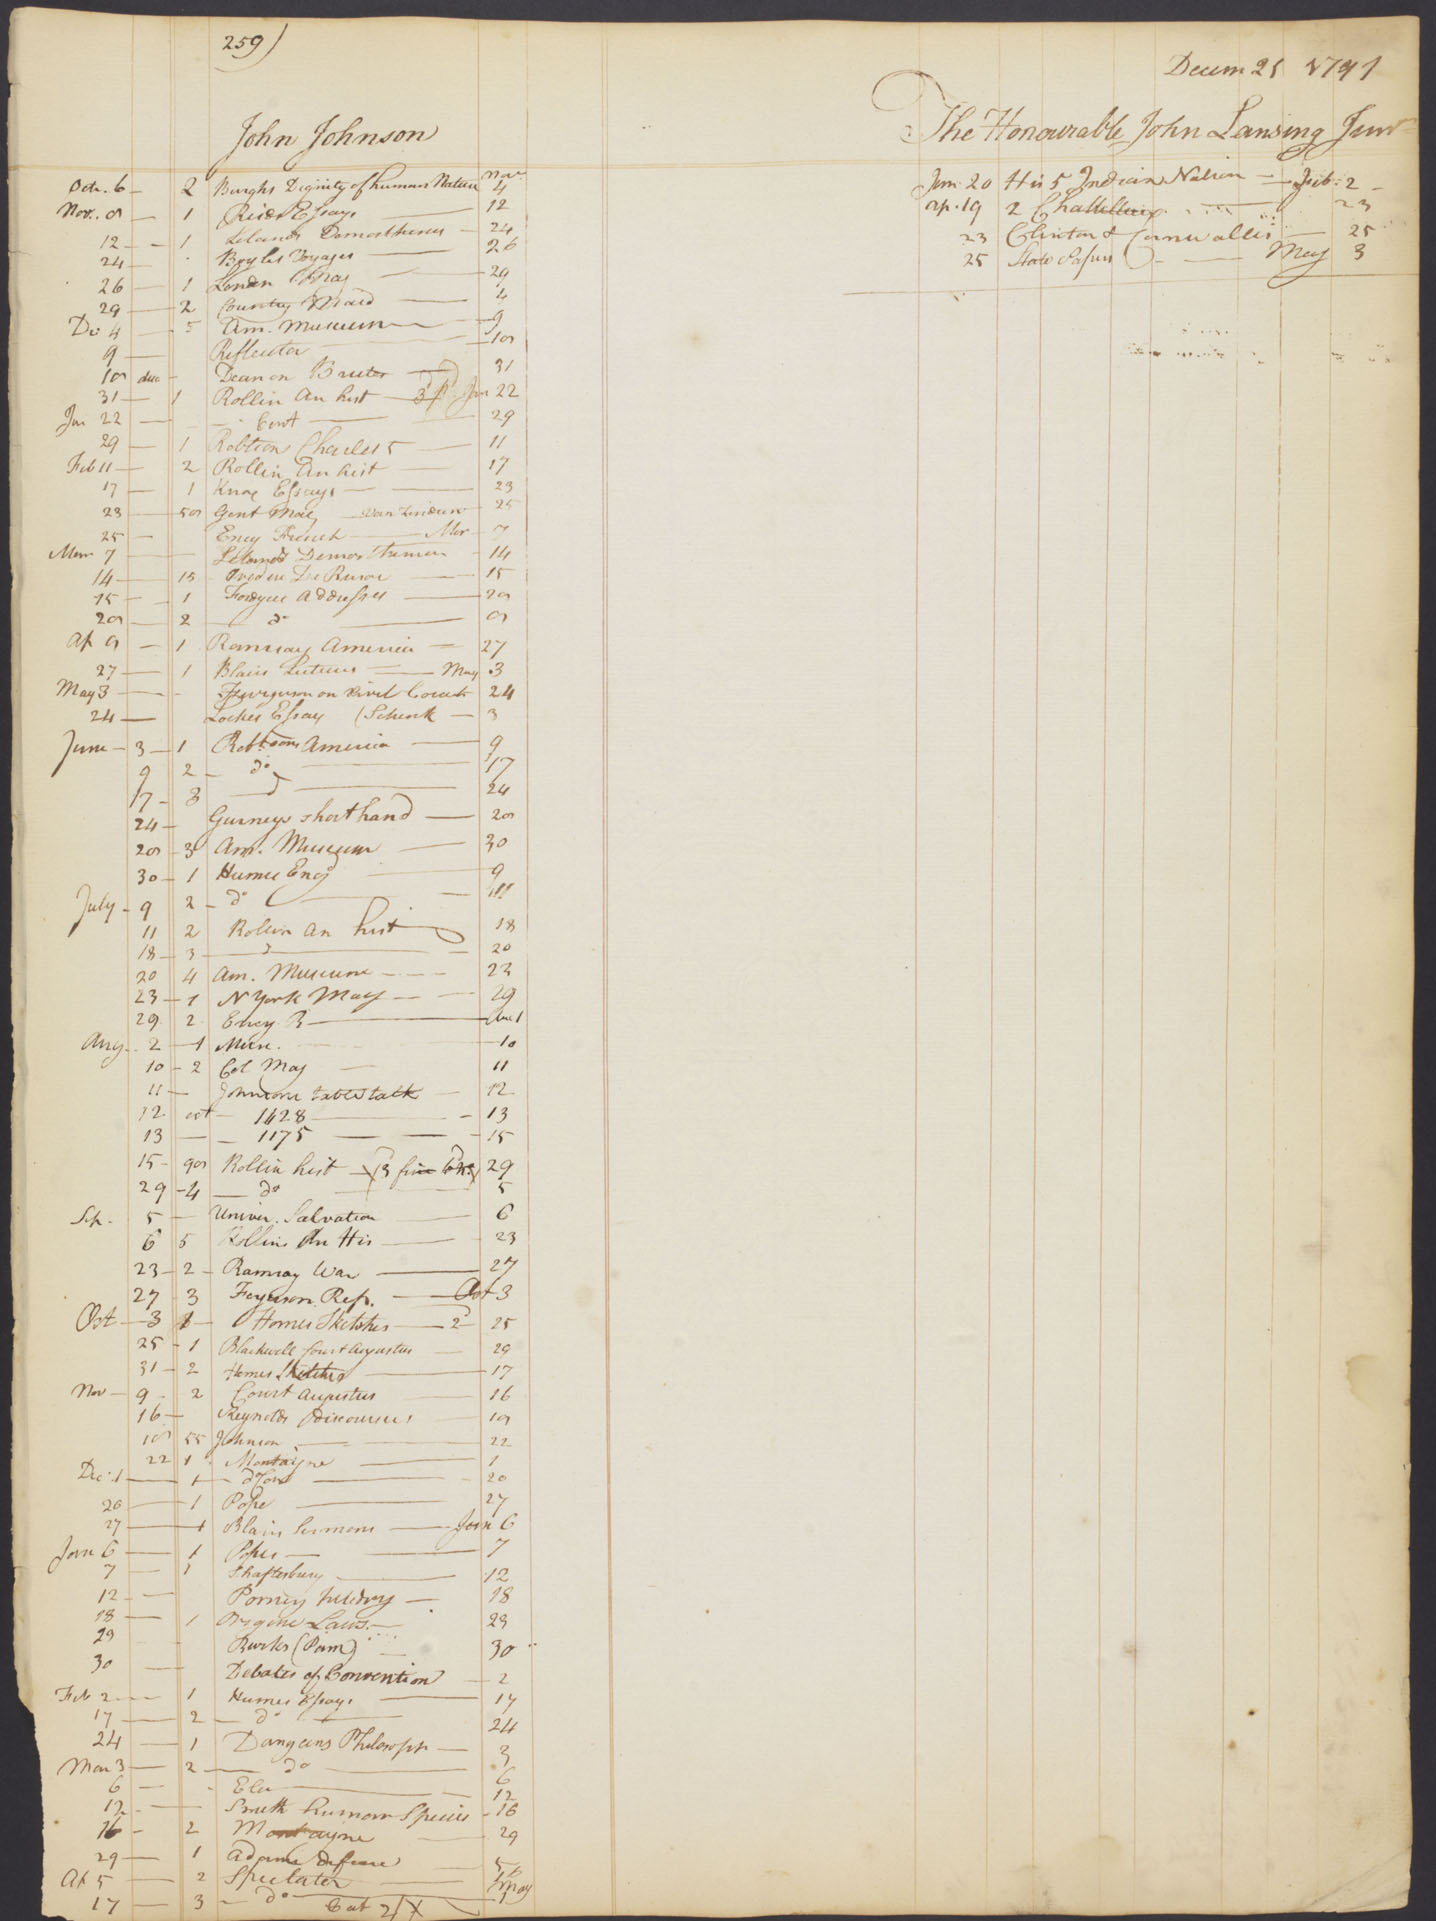 259)
John Johnson
Nov.
Octr. 6 — 2 Burghs Dignity of human Nature 4
Nov. 8 — 1 Essays — 12
12 — 1 Lelands Demosthenes — 24
24 — Boyles Voyages — 26
26 — 1 London Mag — 29
29 — 2 Country Maid — 4
De 4 — 5 Am. Museum — 9
9 — Reflector — 10
10 Dean on Brutes — 31
31 — 1 Rollin An hist — Jan 22
Jan 22 — — Cont — 29
29 — 1 Robtson Charles 5 — 11
Feb 11 — 2 Rollin An hist — 17
17 — 1 Knox Essays — 23
23 — 50 Gent Mag — 25
25 — Ency French — Mar 7
Mar 7 — Lelands Demosthenes — 14
14 — 15 — 15
15 — 1 Fordyce Addresses — 20
20 — 2 — do — 8
Ap 8 — 1 Ramsay America — 27
27 — 1 Blairs Lectures — May 3
May 3 — Ferguson on Civil — 24
24 — Lockes Essay (Schenk — 3
June — 3 — 1 Robtsons America — 9
9 2 — do — 17
17 — 3 — 24
24 — Gurneys short hand — 20
28 — 3 Am. Museum — 30
30 — 1 Humes Eng — 9
July — 9 2 — do — 11
11 2 Rollin An hist 18
18 — 3 — 20
20 4 Am. Museum — 23
23 — 1 N York Mag — 29
29 2 Ency B — Au 1
Aug. 2 — 1 Mirr. — 10
10 — 2 Col Mag — 11
11 — Johnsons table talk — 12
12 oct — 1428 — 13
13 — — 1175 — 15
15 — 90 Rollin hist — 29
29 — 4 — do — 5
Sep. 5 — Univer. Salvation — 6
6 5 Rollins An His — 23
23 — 2 — Ramsay War — 27
27 — 3 Ferguson Rep. — Oct 3
Oct — 3 1 — Homes Sketches — 2 25
25 — 1 Blackwell Court Augustus — 29
31 — 2 Homes Sketches — 17
Nov — 9 — 2 Court Augustus — 16
16 — Reynolds Discourses — 18
18 55 Johnson — 22
22 1 Montaigne — 1
Dec. 1 — 1 — do — 20
20 — 1 Pope — 27
27 — 1 Blairs Sermons — Jan 6
Jan 6 — 1 Popes — 7
7 — 1 Shaftesbury — 12
12 — Porney heldry — 18
18 — 1 Origine Laws — 29
29 Burke (Pam) — 30
30 — Debates of Convention — 2
Feb 2 — 1 Humes Essays — 17
17 — 2 — do — 24
24 — 1 Philosoph — 3
Mar 3 — 2 — do — 6
6 — — 12
12 — Smith human Species — 16
16 — 2 Montaigne — 29
29 — 1 Adams defence — 5
Ap 5 — 2 Spectator — May
17 — 3 — do — Cat 2
Decem 28 1791
The Honourable John Lansing Junr
Jan. 20 His 5 Indian Nation — Feb. 2
Ap. 19 2 — 23
23 Clinton & Cornwallis — 25
25 State Papers — May 3